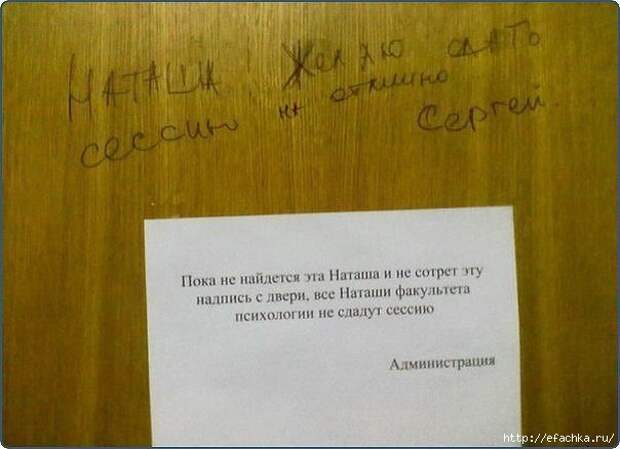 Наташа! Желаю сдать
сессию на отлично
Сергей.
Пока не найдется эта Наташа и не сотрет эту
надпись с двери, все Наташи факультета
психологии не сдадут сессию
Администрация
http://efachka.ru/